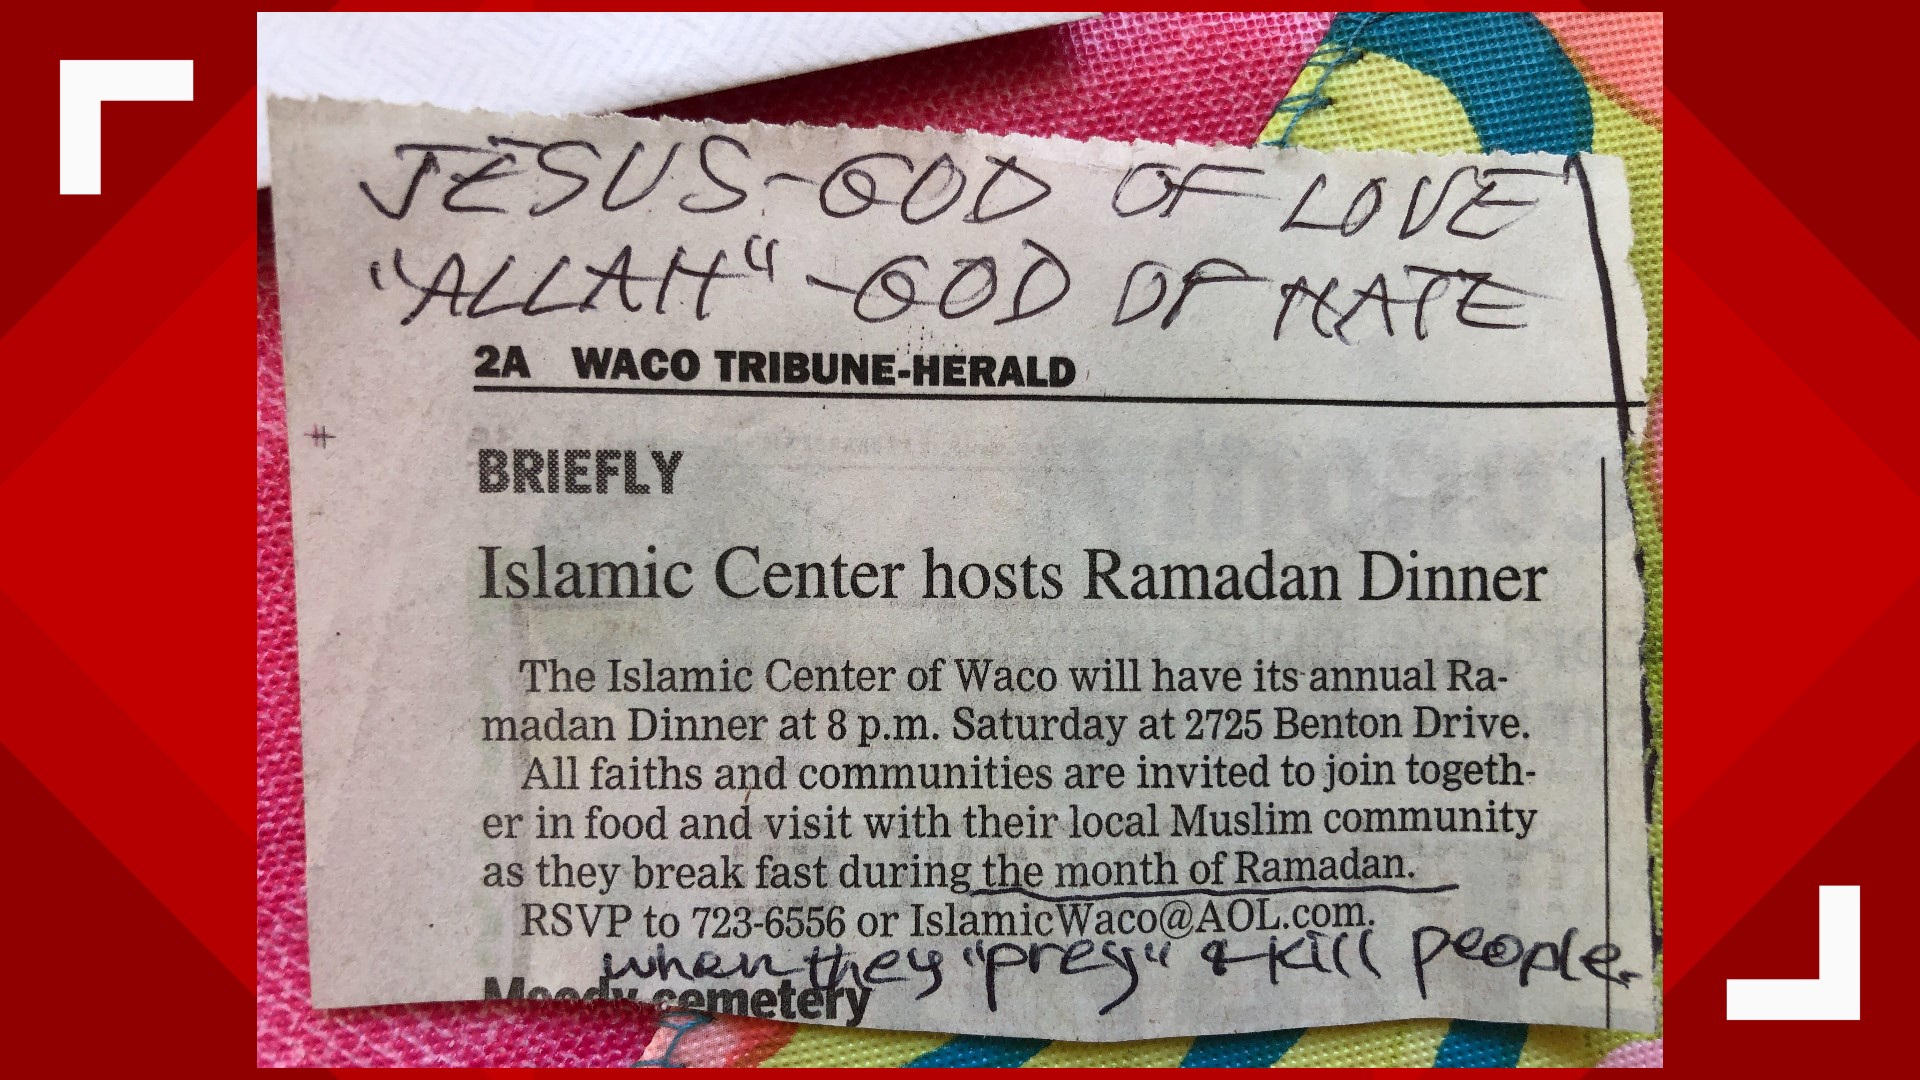 JESUS-GOD OF LOVE
"ALLAH" -GOD OF HATE
2A WACO TRIBUNE-HERALD
BRIEFLY
Islamic Center hosts Ramadan Dinner
The Islamic Center of Waco will have its annual Ra-
madan Dinner at 8 p.m. Saturday at 2725 Benton Drive.
All faiths and communities are invited to join togeth-
er in food and visit with their local Muslim community
as they break fast during the month of Ramadan.
RSVP to 723-6556 or IslamicWaco@AOL.com.
when they "prey" & kill people.
Moody cemetery